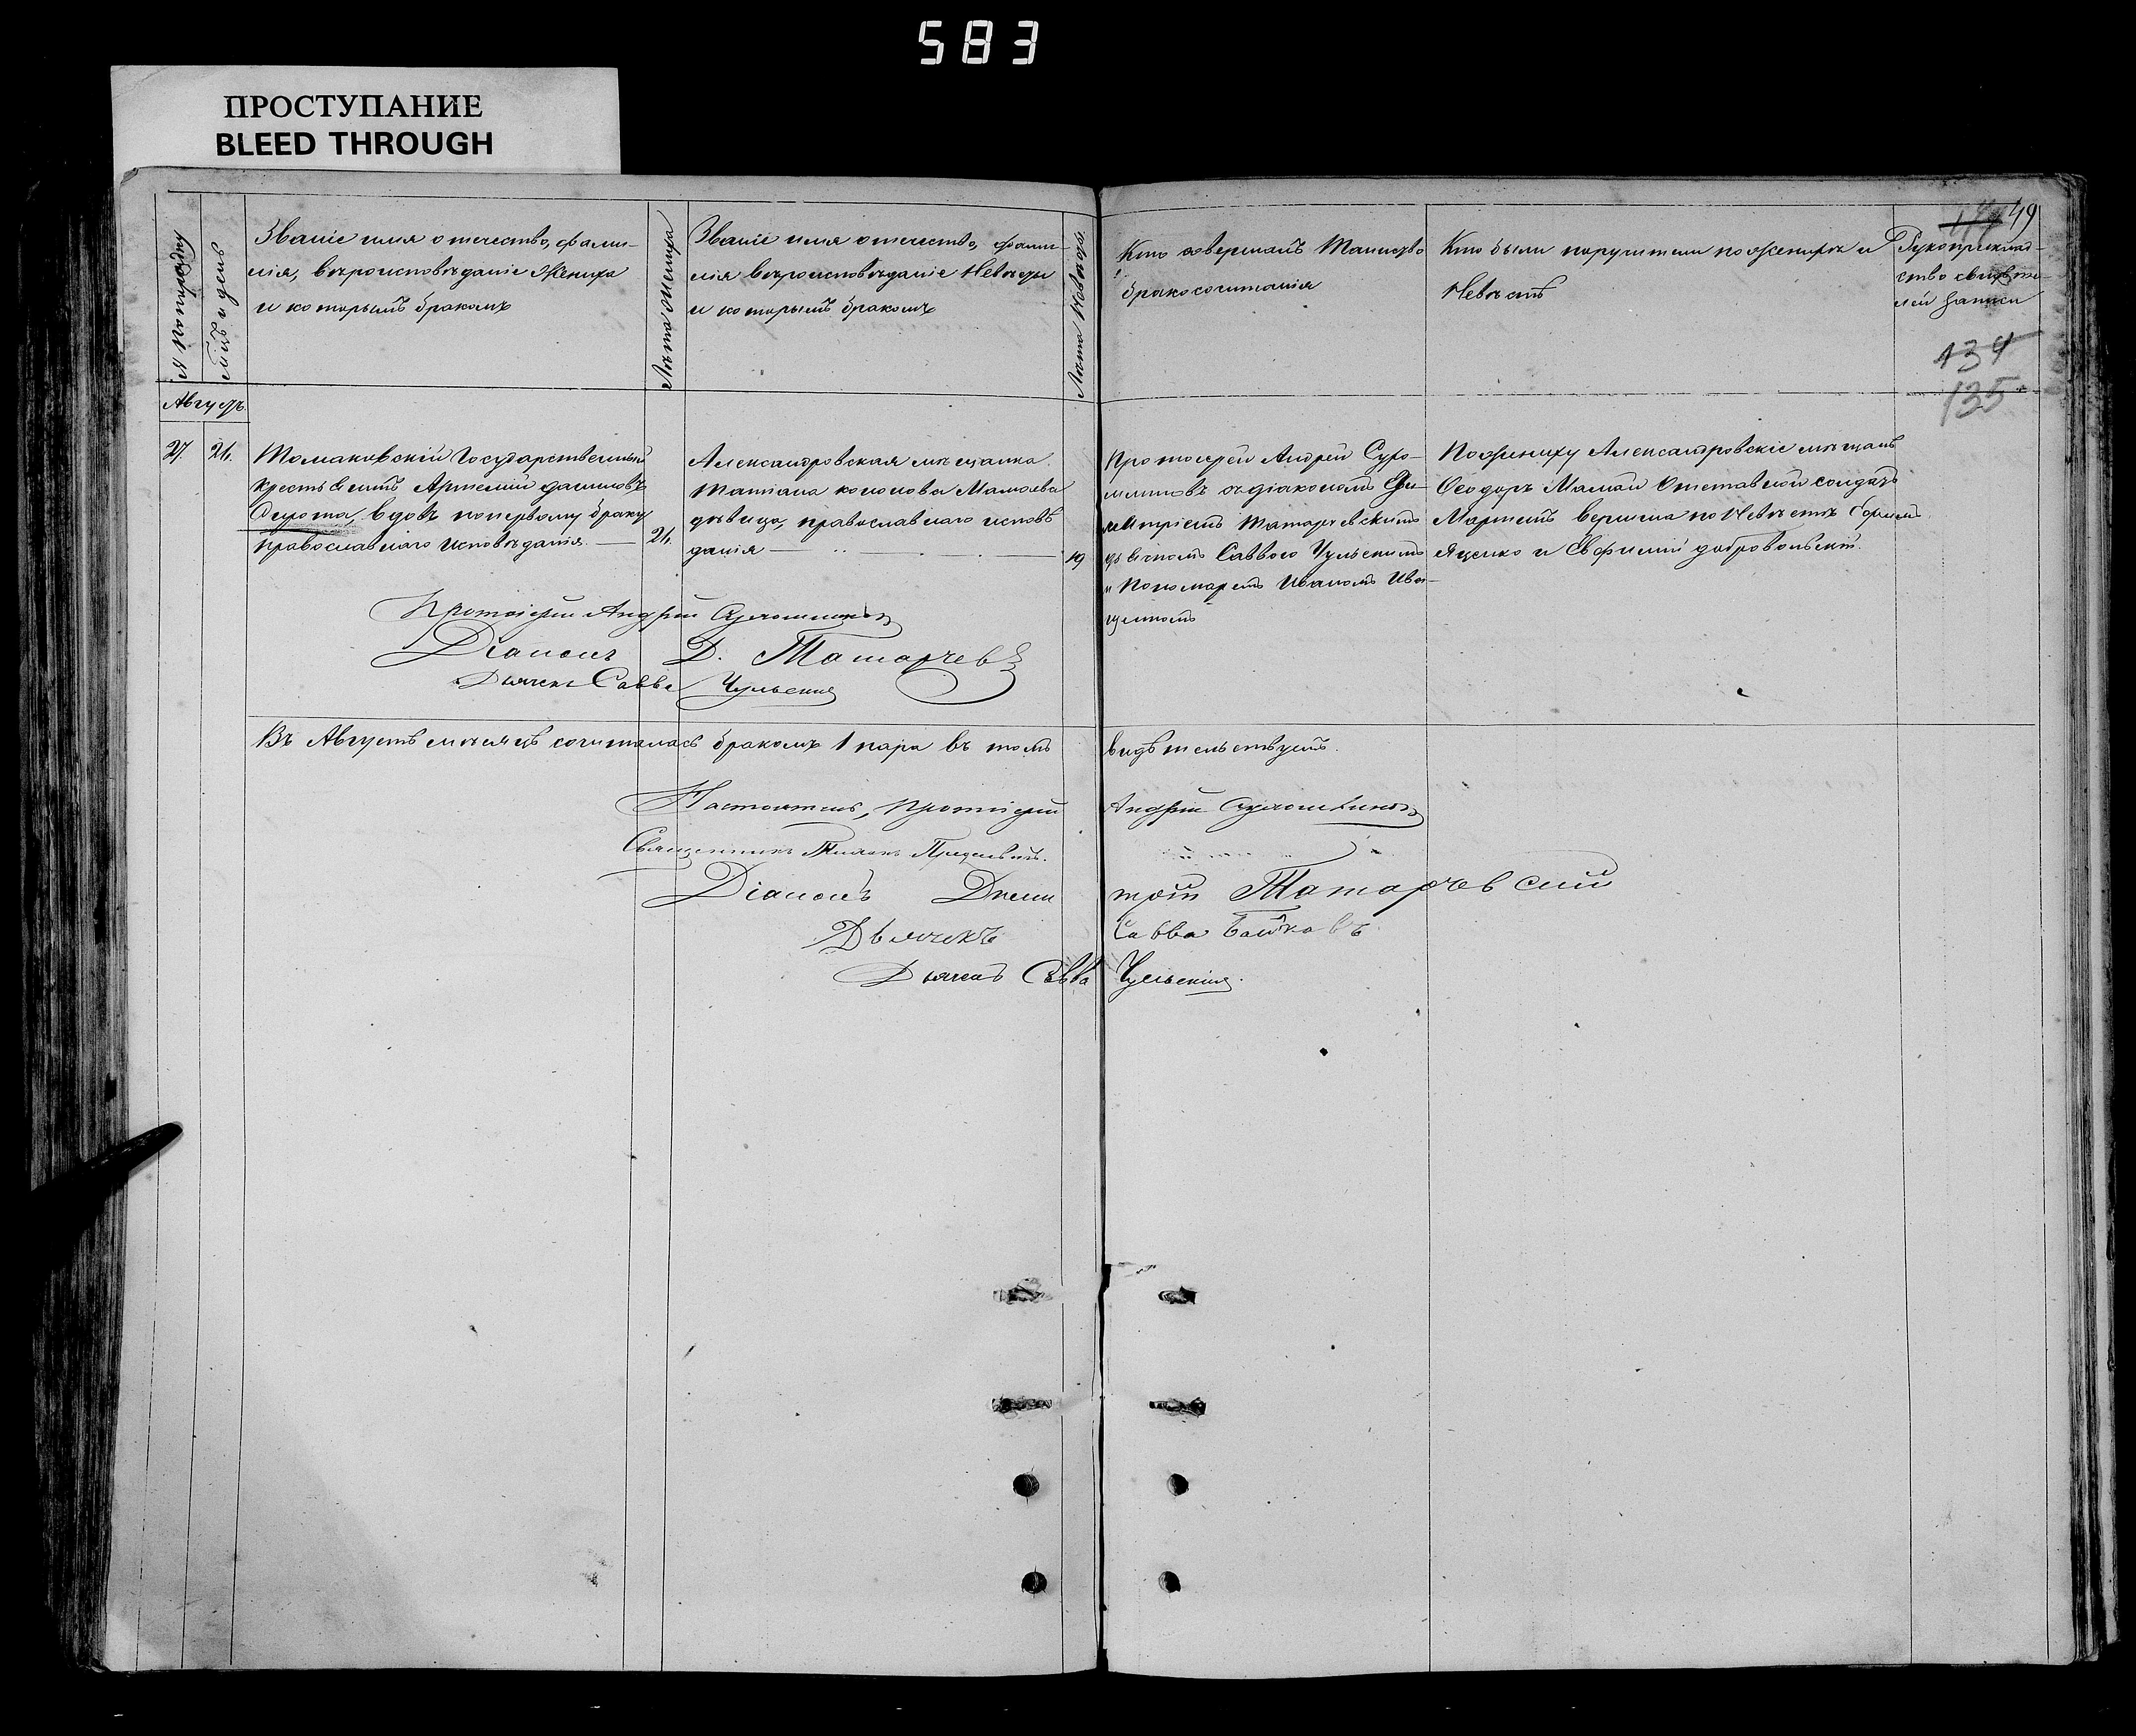 583
ПРОСТУПАНИЕ
BLEED THROUGH
49
Званіе имя отечество, фами-
лія, вѣроисповѣданіе Жениха
и которымъ бракомъ
Лѣта Жениха
Званіе имя отечество, фами-
лія вѣроисповѣданіе Невѣсты
и которымъ бракомъ
Лѣта Невѣсты
Кто совершалъ Таинство
бракосочитанія
Кто были поручители по Женихѣ и
Невѣстѣ
Рукоприклад-
ство свидѣте-
лей записи
134
135
Августъ
27. 21.
Томаковскій Государственный
крестьянинъ Артемій Даниловъ
Сирота, вдовъ попервому браку
православнаго исповѣданія. —
21.
Александровская мѣщанка
Татіана Мамаева
дѣвица, православнаго исповѣ
данія —
19
Протоіерей Андрей Сухо-
млиновъ съ діакономъ Ди-
митріемъ Татарчевскимъ
Саввою Чульскимъ
и Пономаремъ Иваномъ
По жениху Александровскіе мѣщане
Ѳеодоръ Мамай Отставной солдатъ
Мартинъ вершина по Невѣстѣ
Яценко и Евфимій добровольскій.
Протоіерей Андрей Сухомлиновъ
Діаконъ Д. Татарчев
Дьячекъ Савва Чульскій
Въ Августѣ мѣсяцѣ сочиталась бракомъ 1 пара въ томъ видѣтельствуемъ.
Настоятель, Протоіерей Андрей Сухомлиновъ
Священникъ
Діаконъ Димитрій Татарчевский
Дьячекъ Савва Байковъ
Дьячекъ Савва Чульскій.